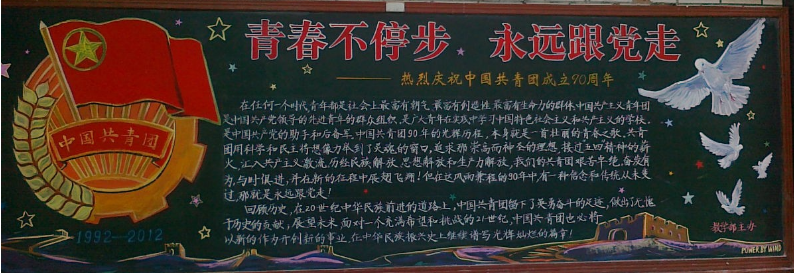 青春不停步 永远跟党走
——热烈庆祝中国共青团成立90周年
中国共青团
1922-2012
在任何一个时代青年都是社会上最富有朝气、最富有创造性、最富有生命力的群体，中国共产主义青年团
是中国共产党领导的先进青年的群众组织，是广大青年在实践中学习中国特色社会主义和共产主义的学校，
是中国共产党的助手和后备军。中国共青团90年的光辉历程，本身就是一首壮丽的青春之歌。共青
团用科学和民主将想像力牵到了天魂的窗口，追求那崇高而神圣的理想，接过五四精神的薪
火，汇入共产主义激流，历经民族解放、思想解放和生产力解放，我们的共青团艰苦卓绝，奋发有
为，与时俱进，并在新的征程中展翅飞翔！但在这风雨兼程的90年中有一种信念和传统从未变
过，那就是永远跟党走！
回顾历史，在20世纪中华民族前进的道路上，中国共青团留下了英勇奋斗的足迹，做出了无愧
于历史的贡献，展望未来，面对一个充满希望和挑战的21世纪，中国共青团也必将
以新的作为开创新的事业，在中华民族振兴史上继续谱写光辉灿烂的篇章！
教学部主办
POWER BY WIND